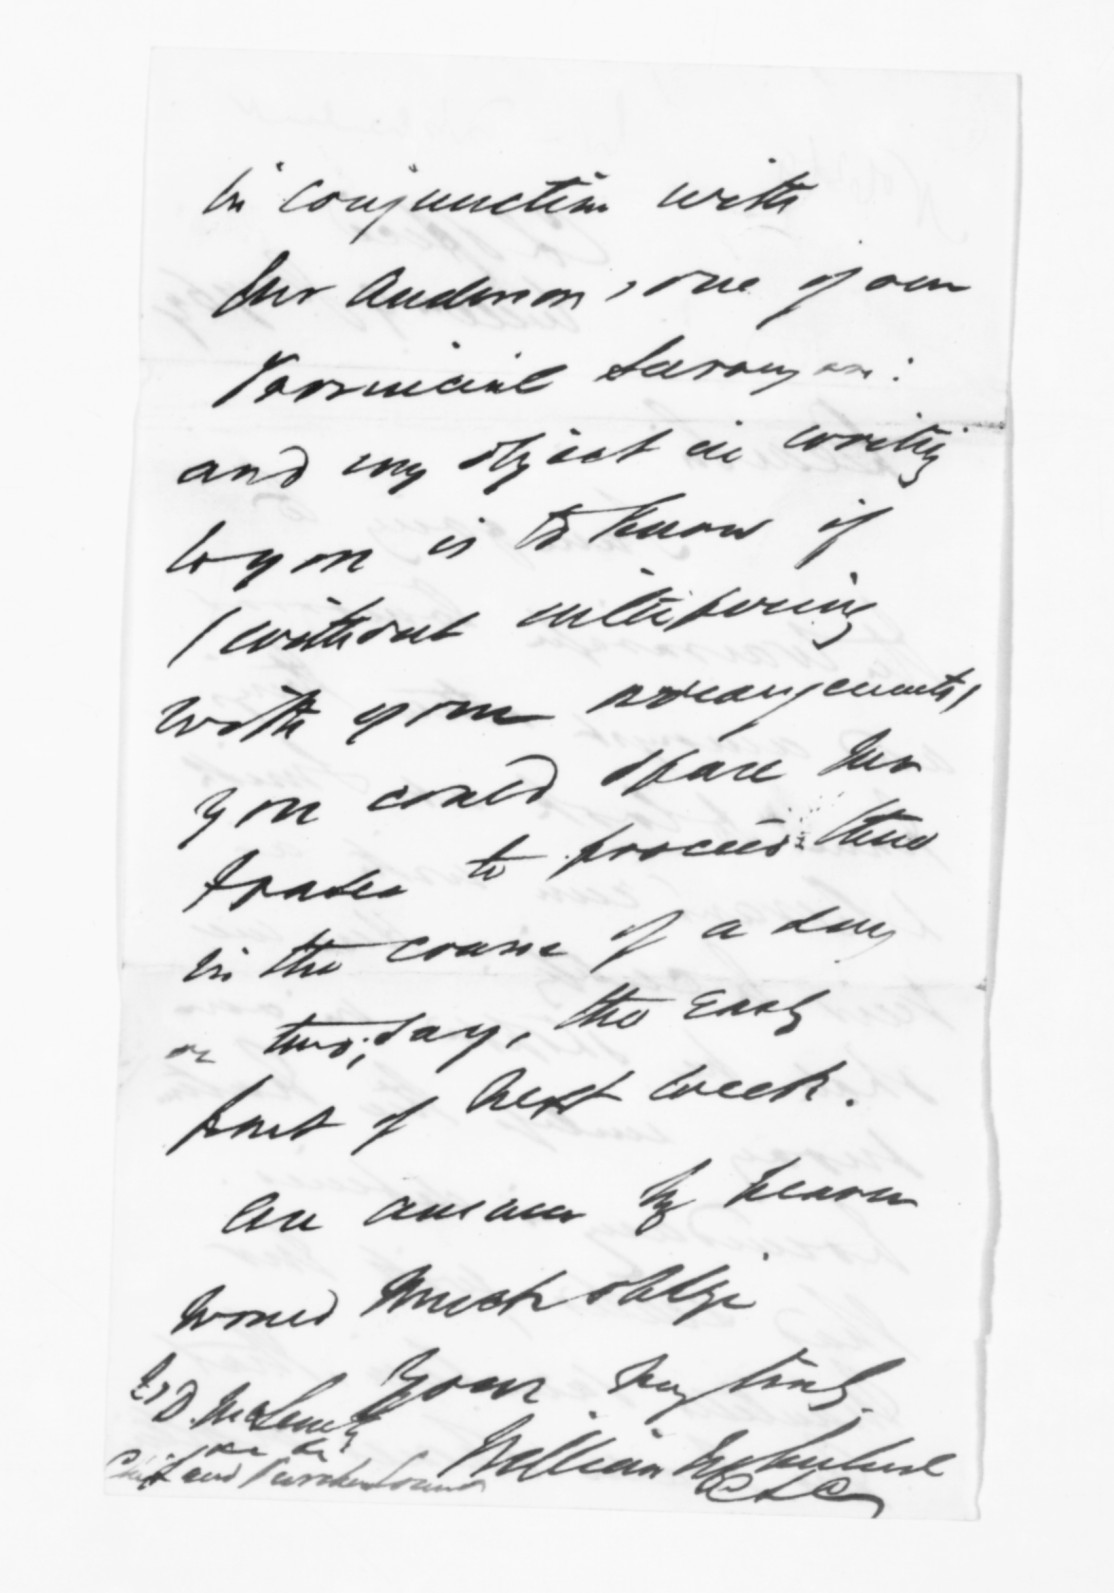 in conjunction with
Mr Anderson, one of our
Provincial Surveyors:
and my object in writing
to you is to know if
without interfering
with your arrangements,
you could spare Mr
Fraser to proceed there
in the course of a day
or two; say, the early
part of next week.
An answer by bearer
would much oblige
Yours very truly,
To D. McLean Esq
William
Chief Land Purchase Commr